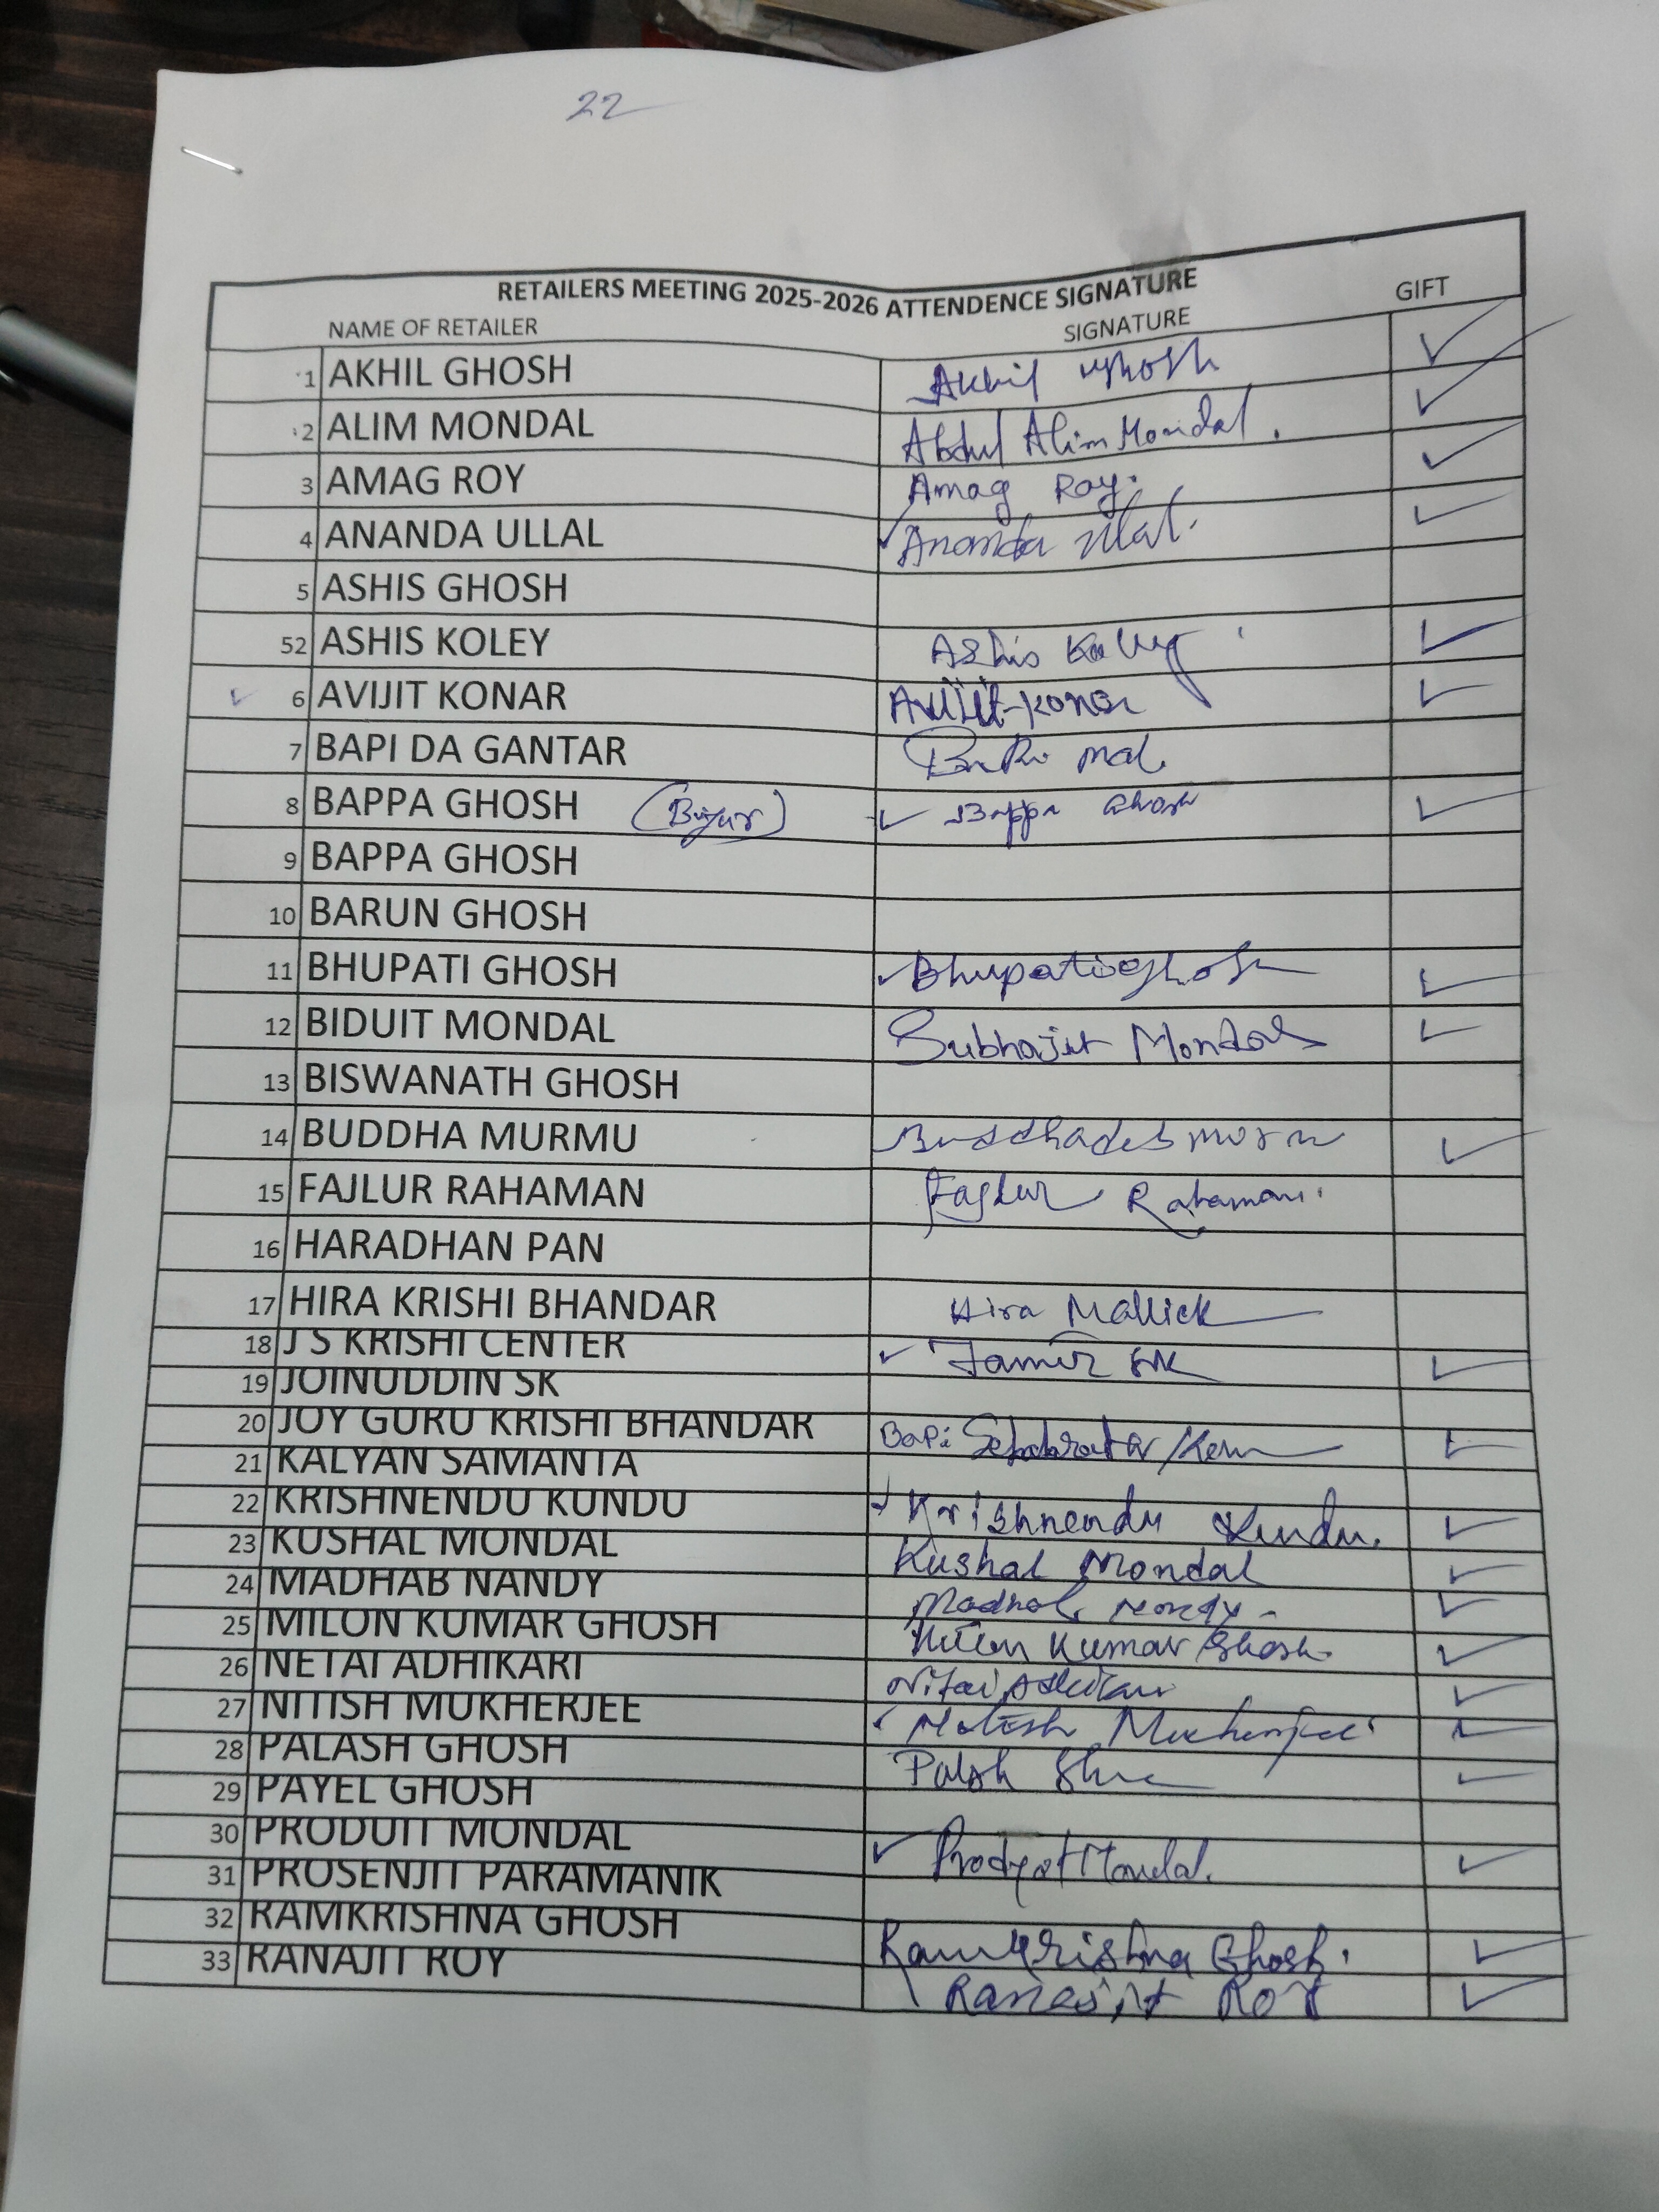 22
RETAILERS MEETING 2025-2026 ATTENDENCE SIGNATURE
NAME OF RETAILER SIGNATURE GIFT
1 AKHIL GHOSH Akhil Ghosh ✓
2 ALIM MONDAL Abdul Alim Mondal. ✓
3 AMAG ROY Amag Roy. ✓
4 ANANDA ULLAL ✓ Ananda Ullal. ✓
5 ASHIS GHOSH
52 ASHIS KOLEY Ashis Koley ✓
✓ 6 AVIJIT KONAR Avijit Konar ✓
7 BAPI DA GANTAR Mal.
8 BAPPA GHOSH (Bijur) ✓ Bappa Ghosh ✓
9 BAPPA GHOSH
10 BARUN GHOSH
11 BHUPATI GHOSH ✓ Bhupati Ghosh ✓
12 BIDUIT MONDAL Subhajit Mondal ✓
13 BISWANATH GHOSH
14 BUDDHA MURMU Buddhadeb ✓
15 FAJLUR RAHAMAN Fajlur Rahaman
16 HARADHAN PAN
17 HIRA KRISHI BHANDAR Hira Mallick
18 J S KRISHI CENTER ✓ Jamir SK ✓
19 JOINUDDIN SK
20 JOY GURU KRISHI BHANDAR Bapi ✓
21 KALYAN SAMANTA
22 KRISHNENDU KUNDU ✓ Krishnendu Kundu. ✓
23 KUSHAL MONDAL Kushal Mondal ✓
24 MADHAB NANDY Madhab Nandy - ✓
25 MILON KUMAR GHOSH Milon Kumar Ghosh. ✓
26 NETAI ADHIKARI Nitai Adhikari ✓
27 NITISH MUKHERJEE ✓ Mukherjee ✓
28 PALASH GHOSH Palash ✓
29 PAYEL GHOSH
30 PRODUIT MONDAL ✓ Prodyot Mondal. ✓
31 PROSENJIT PARAMANIK
32 RAMKRISHNA GHOSH Ramkrishna Ghosh. ✓
33 RANAJIT ROY Ranajit ROY ✓